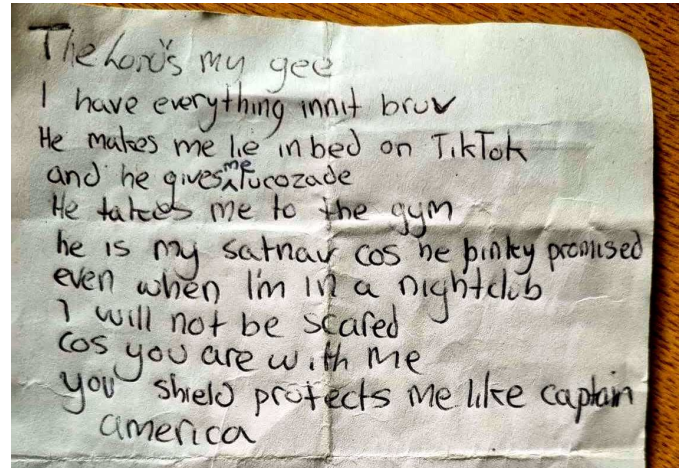 The Lord's my gee
I have everything innit bruv
He makes me lie in bed on TikTok
and he gives me Lucozade
He takes me to the gym
he is my satnav cos he pinky promised
even when I'm in a nightclub
I will not be scared
cos you are with me
you shield protects me like captain
america